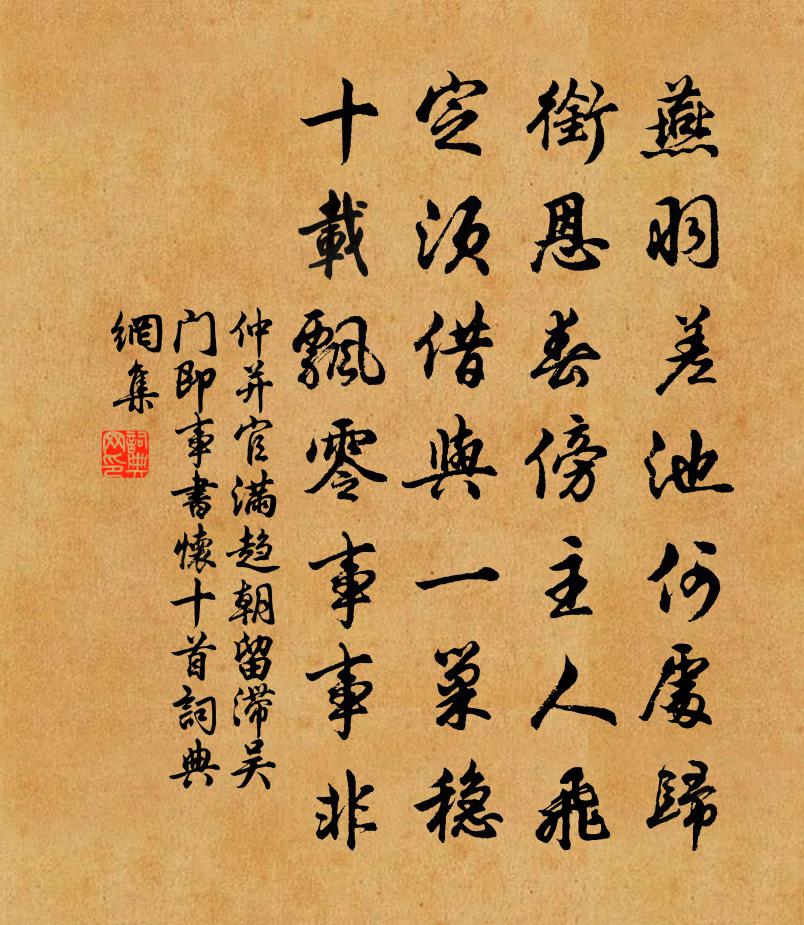 燕羽差池何處歸
銜恩春傍主人飛
定須借與一巢穏
十載飄零事事非
仲并官满趋朝留滞吴
门即事書懷十首詞典
網集
詞典
网印